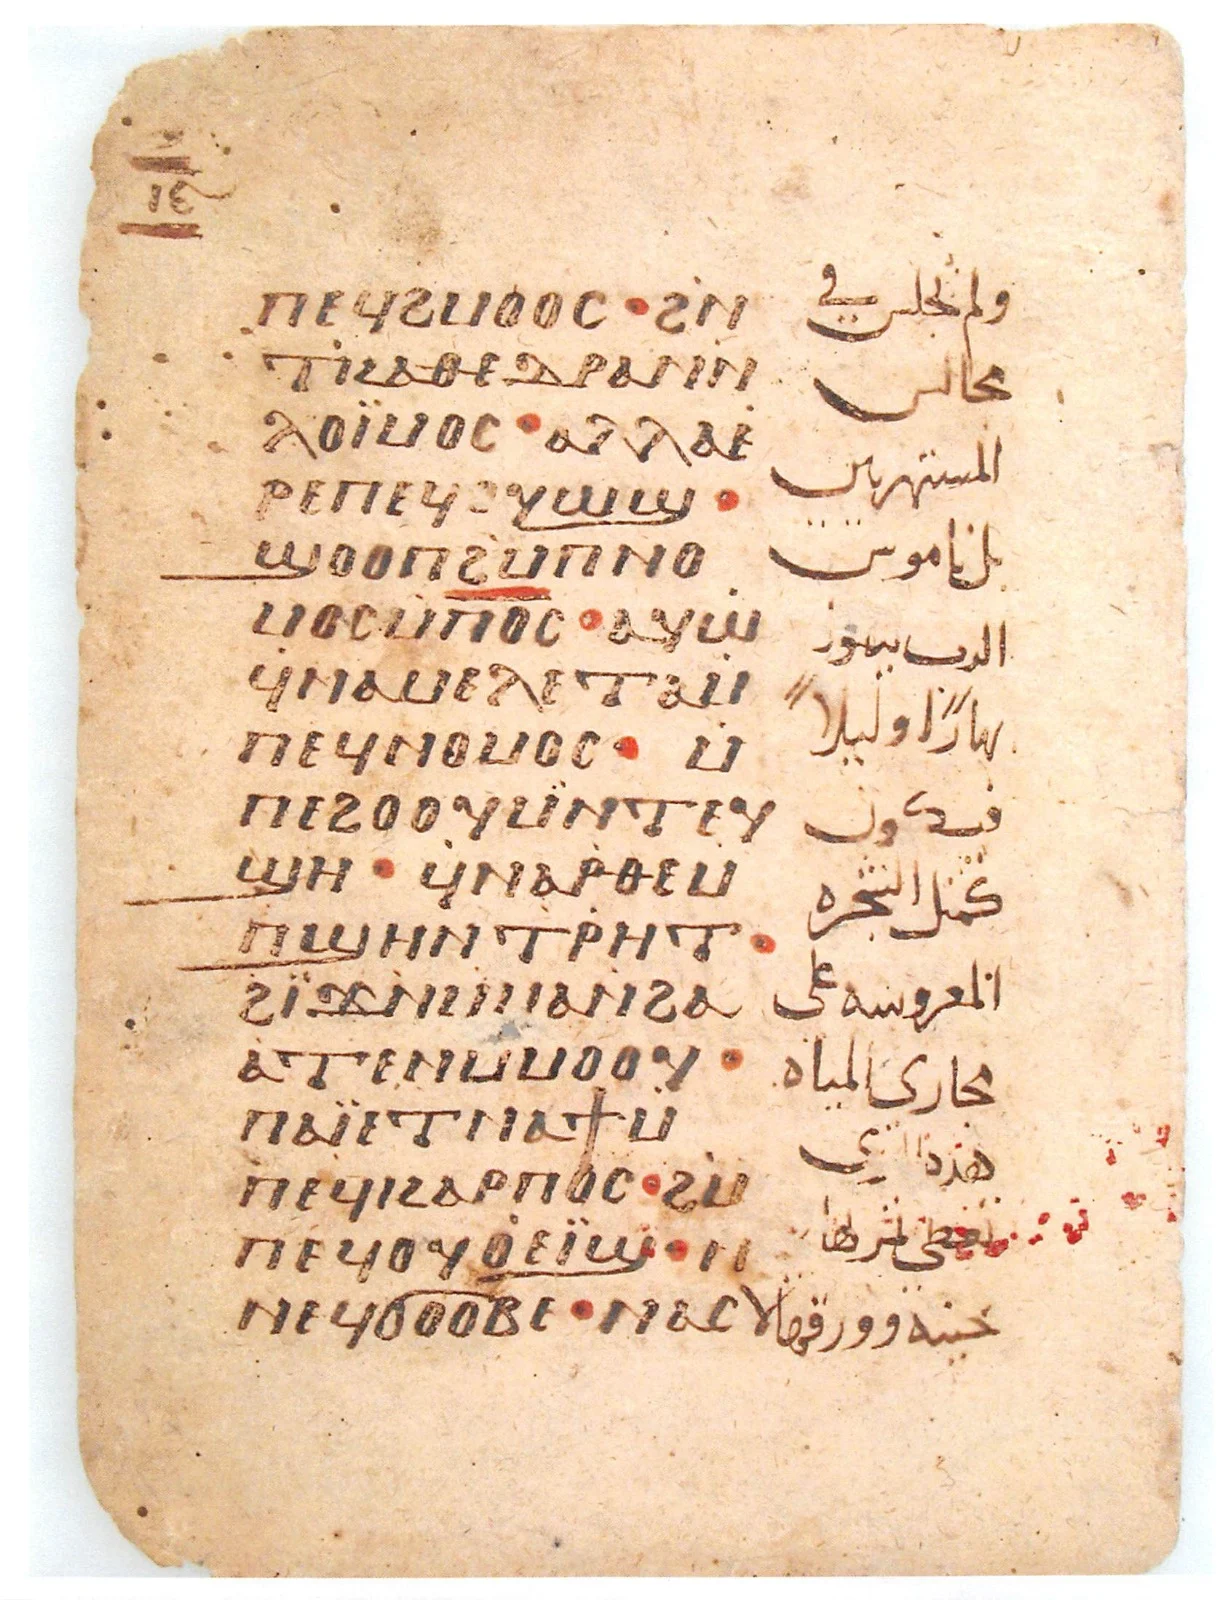 ⲓⲉ
ⲡⲉϥϩⲙⲟⲟⲥ • ϩⲛ̀
ⲧⲕⲁⲑⲉⲇⲣⲁⲛⲛ̀
ⲗⲟⲓ̈ⲙⲟⲥ • ⲁⲗⲗⲁⲉ̀
ⲣⲉⲡⲉϥⲟⲩⲱϣ •
ϣⲟⲟⲡϩⲙ̀ⲡⲛⲟ
ⲙⲟⲥⲙ̀ⲡⲟⲥ • ⲁⲩⲱ
ϥ̀ⲛⲁⲙⲉⲗⲉⲧⲁⲙ̀
ⲡⲉϥⲛⲟⲙⲟⲥ • ⲙ̀
ⲡⲉϩⲟⲟⲩⲙⲛ̀ⲧⲉⲩ
ϣⲏ • ϥ̀ⲛⲁⲣ̀ⲑⲉⲙ
ⲡϣⲏⲛ ⲧⲣ̀ⲏⲧ •
ϩⲓ̈ϫⲛ̀ⲙ̀ⲙⲁⲛϩⲁ
ⲁⲧⲉⲙⲙⲟⲟⲩ •
ⲡⲁⲓ̈ⲉⲧⲛⲁϯⲙ̀
ⲡⲉϥⲕⲁⲣⲡⲟⲥ • ϩⲙ̀
ⲡⲉϥⲟⲩⲟⲉⲓ̈ϣ • ⲛ
ⲛⲉϥϭⲟⲟⲃⲉ • ⲛⲁⲥ
ولم يجلس في
مجالس
المستهزيين
بل ناموس
الرب
نهارًا وليلاً
فيكون
كمثل الشجره
المغروسه على
مجارى المياه
هذه التى
تعطى ثمرتها
حينه وورقها لا